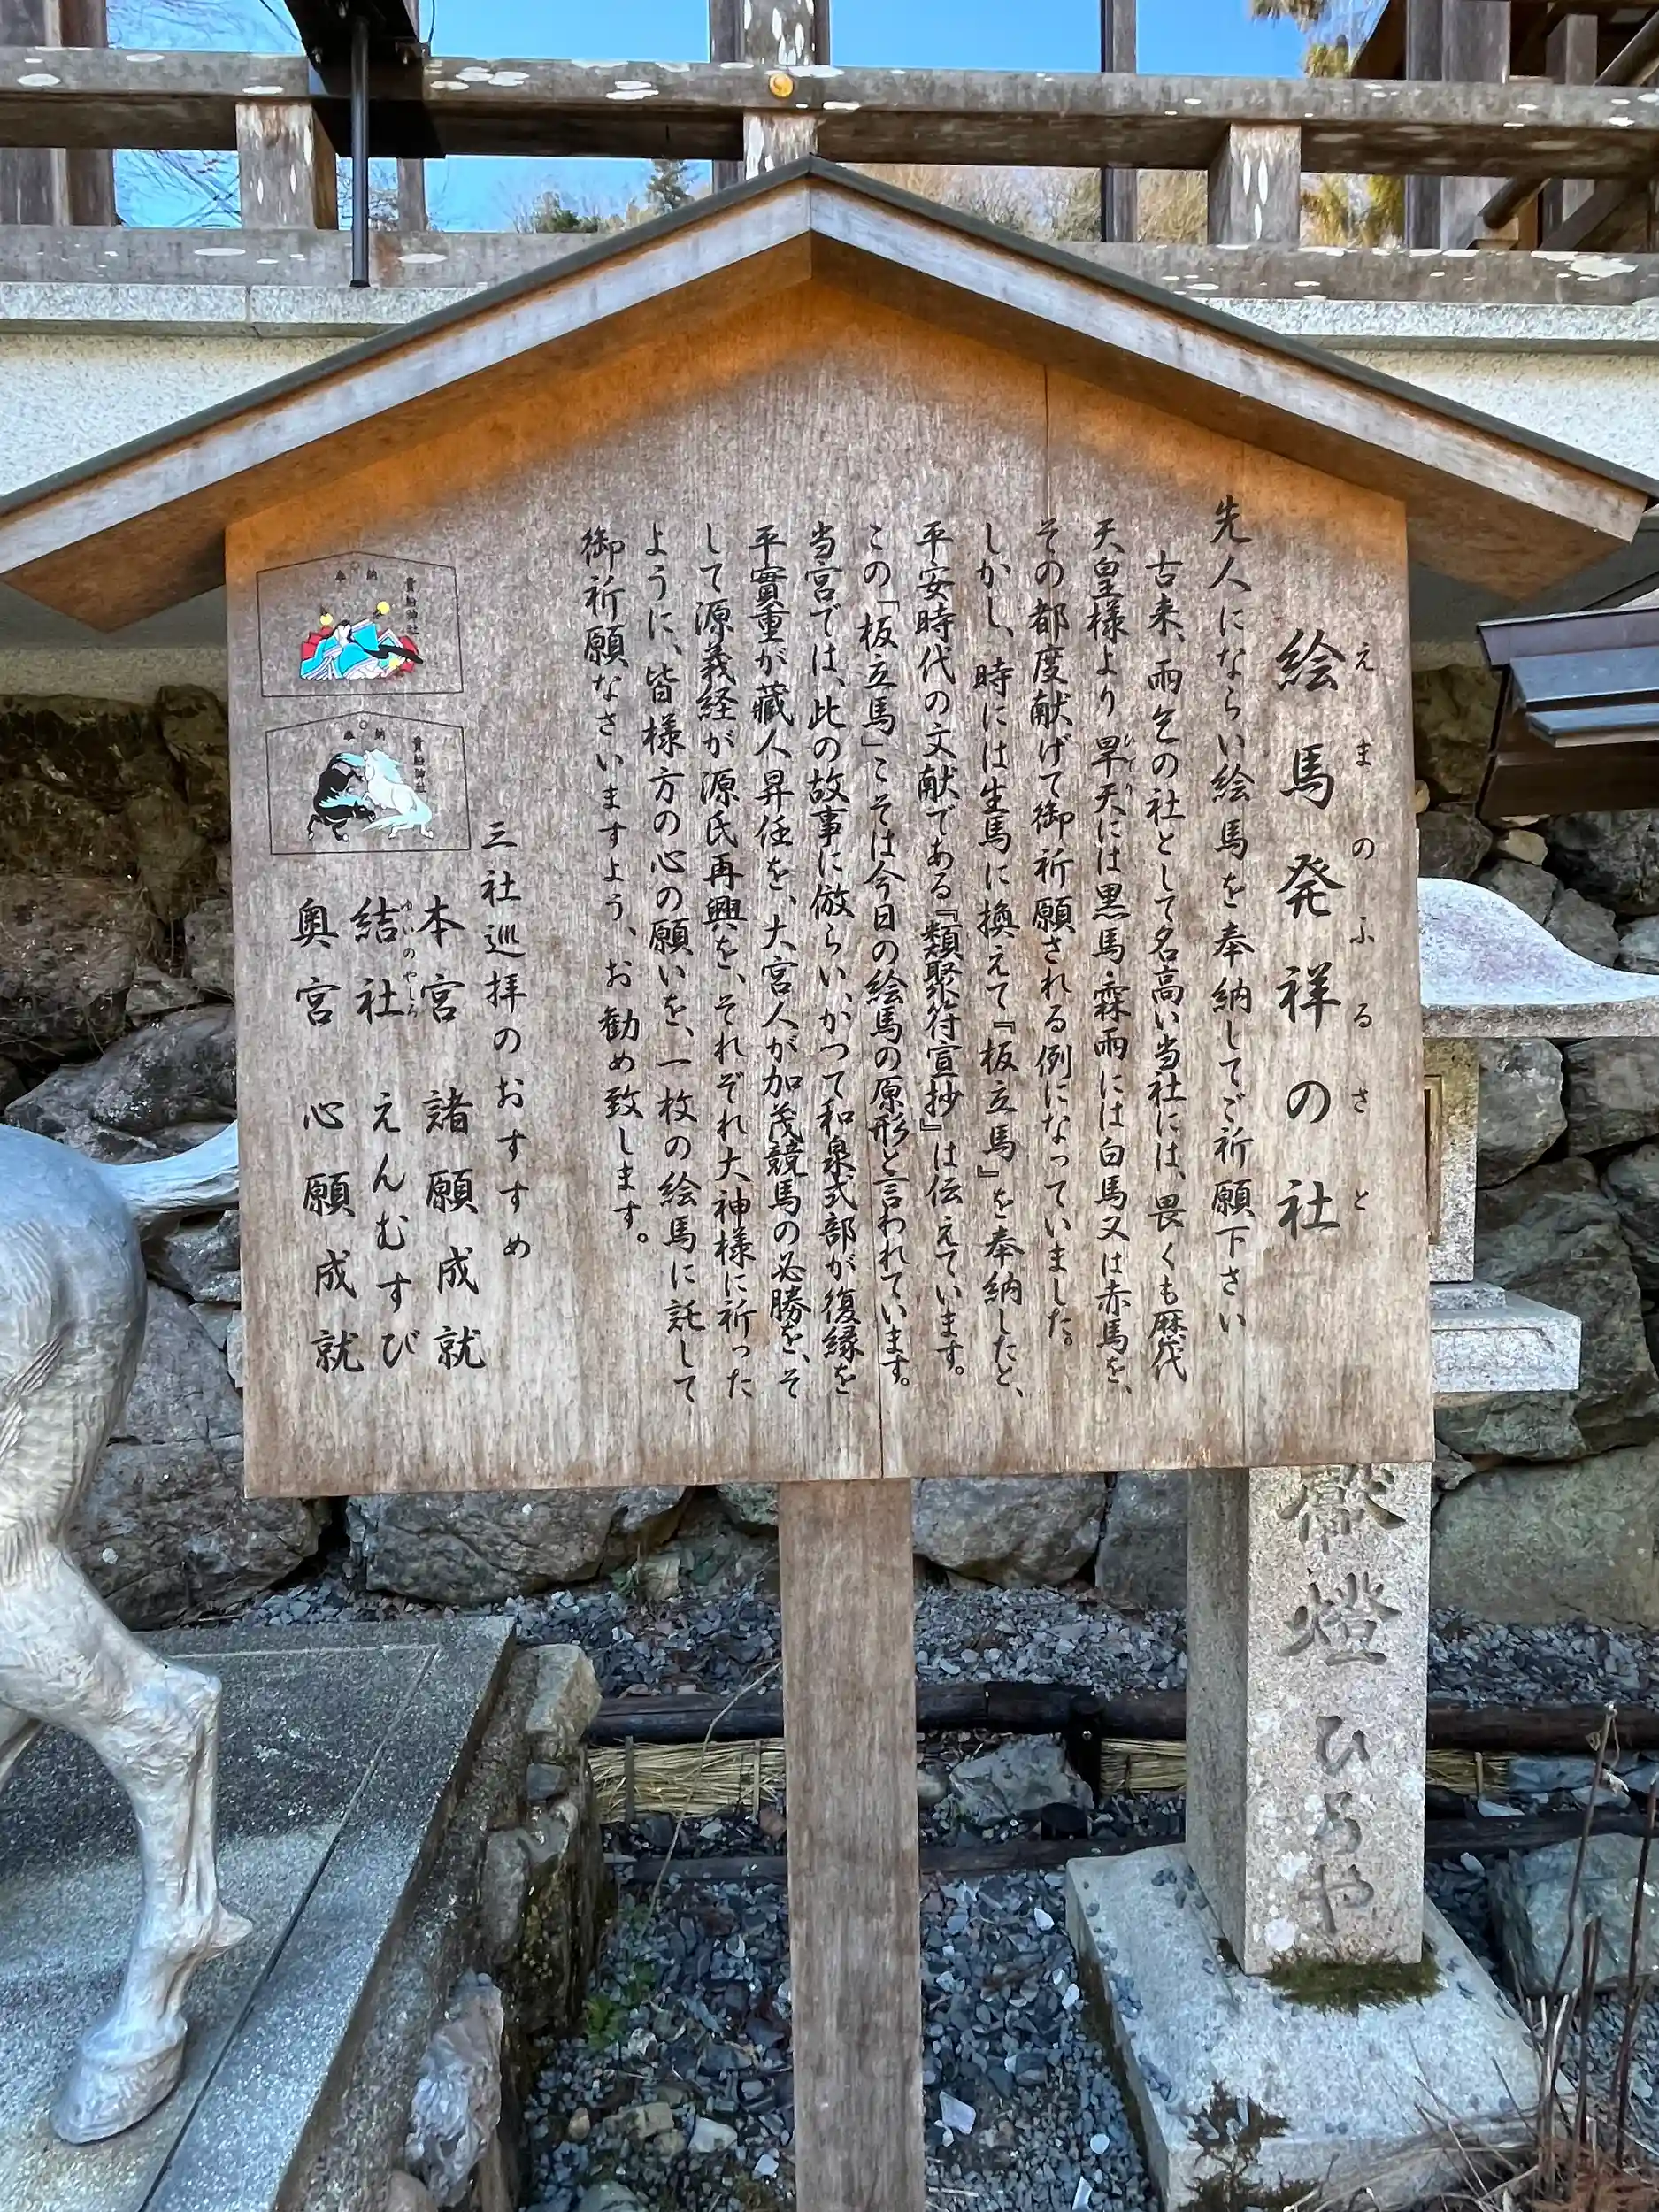 絵馬発祥の社
えまのふるさと
先人にならい絵馬を奉納してご祈願下さい
古来、雨乞の社として名高い当社には、畏くも歴代
天皇様より旱天には黒馬霖雨には白馬又は赤馬を、
ひでり
その都度献げて御祈願される例になっていました。
しかし、時には生馬に換えて『板立馬』を奉納したと、
平安時代の文献である『類聚符宣抄』は伝えています。
この「板立馬」こそは今日の絵馬の原形と言われています。
当宮では、此の故事に倣らい、かつて和泉式部が復縁を
平實重が蔵人昇任を、大宮人が加茂競馬の必勝を、そ
して源義経が源氏再興を、それぞれ大神様に祈った
ように、皆様方の心の願いを、一枚の絵馬に託して
御祈願なさいますよう、お勧め致します。
三社巡拝のおすすめ
本宮 諸願成就
結社 えんむすび
ゆいのやしろ
奥宮 心願成就
奉納
貴船神社
奉納
貴船神社
献燈ひろや